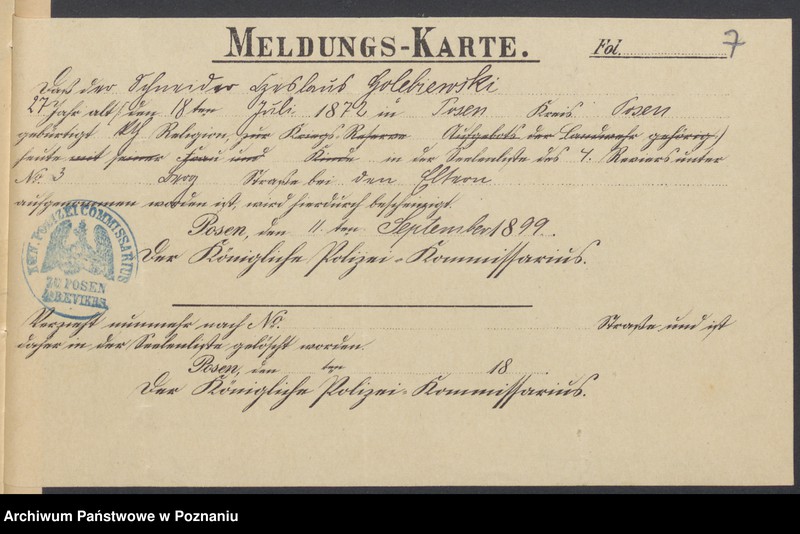 MELDUNGS-KARTE.
Fol. 7
Daß der Schneider Czeslaus Golebiewski
27 Jahr alt, den 18ten Juli 1872 in Posen Kreis Posen
gebürtigt, kth Religion, zur Kriegs-Reserve Aufgebots der Landwehr gehörig,
heute mit seiner Frau und Kinde in der Seelenliste des 4. Reviers unter
No. 3 Berg Straße bei den Eltern
aufgenommen worden ist, wird hierdurch bescheinigt.
Posen, den 11 ten September 1899.
Der Königliche Polizei-Kommissarius.
KÖN. POLIZEI COMMISSARIUS
ZU POSEN
4. REVIERS
Verzieht nunmehr nach No. Straße und ist
daher in der Seelenliste gelöscht worden.
Posen, den ten 18
Der Königliche Polizei-Kommissarius.
Archiwum Państwowe w Poznaniu